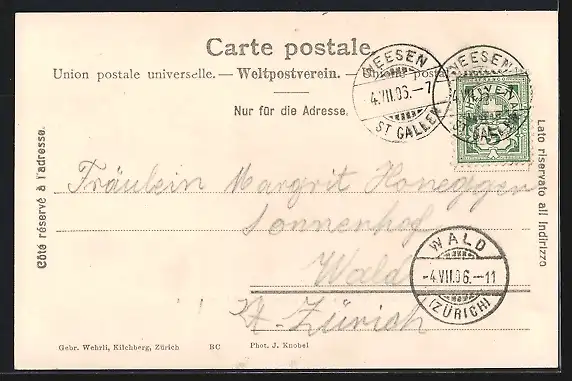 Carte postale.
Union postale universelle. — Weltpostverein. — Unione postale
Nur für die Adresse.
NEESEN
4.VII.06.–7
ST GALLEN
NEESEN
ST GALLEN
HELVETIA
5
Côté réservé à l'adresse.
Lato riservato all indirizzo
Fräulein Margrit Honegger
Sonnenhof
Wald
Kt. Zürich
WALD
-4.VII.06.–11
(ZÜRICH)
Gebr. Wehrli, Kilchberg, Zürich BC Phot. J. Knobel